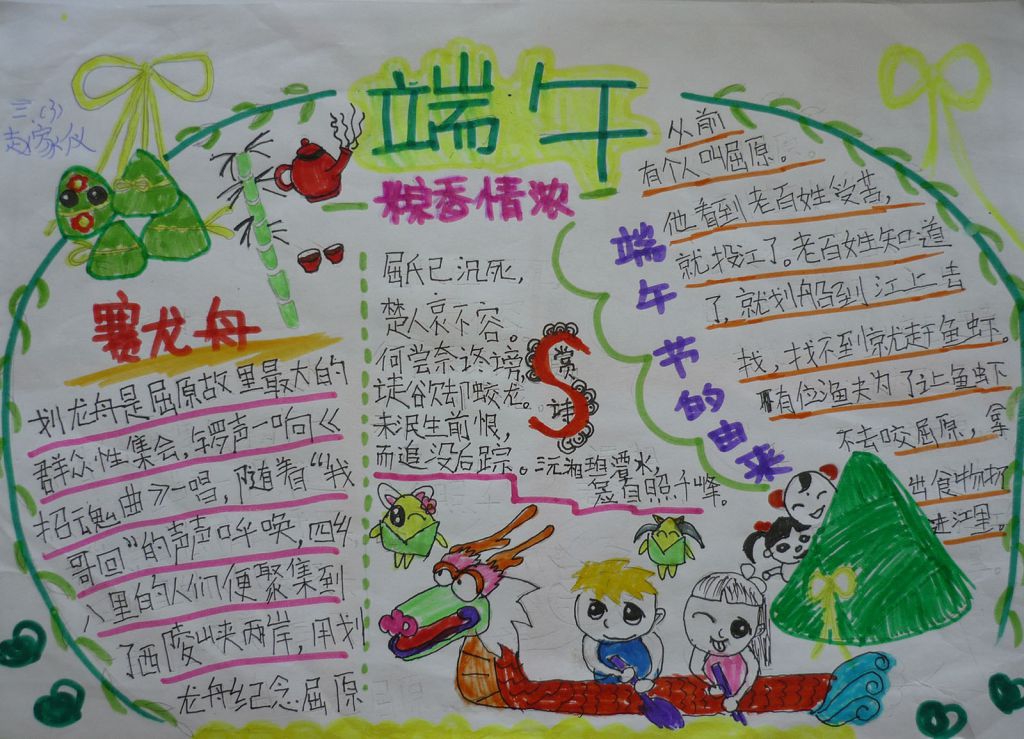 三.(3)
赵家仪
端午
粽香情浓
赛龙舟
划龙舟是屈原故里最大的
群众性集会，锣声一响《
招魂曲》一唱，随着“我
哥回”的声声呼唤，四乡
八里的人们便聚集到
了西陵峡两岸，用划
龙舟纪念屈原
屈氏已沉死，
楚人哀不容。
何尝奈谗谤，
徒欲却蛟龙。
未泯生前恨，
而追没后踪。沅湘碧潭水，
应自照千峰。
赏
诗
端午节的由来
从前
有个人叫屈原。
他看到老百姓受苦，
就投江了。老百姓知道
了，就划船到江上去
找，找不到就赶鱼虾。
有位渔夫为了让鱼虾
不去咬屈原，拿
出食物扔
进江里。